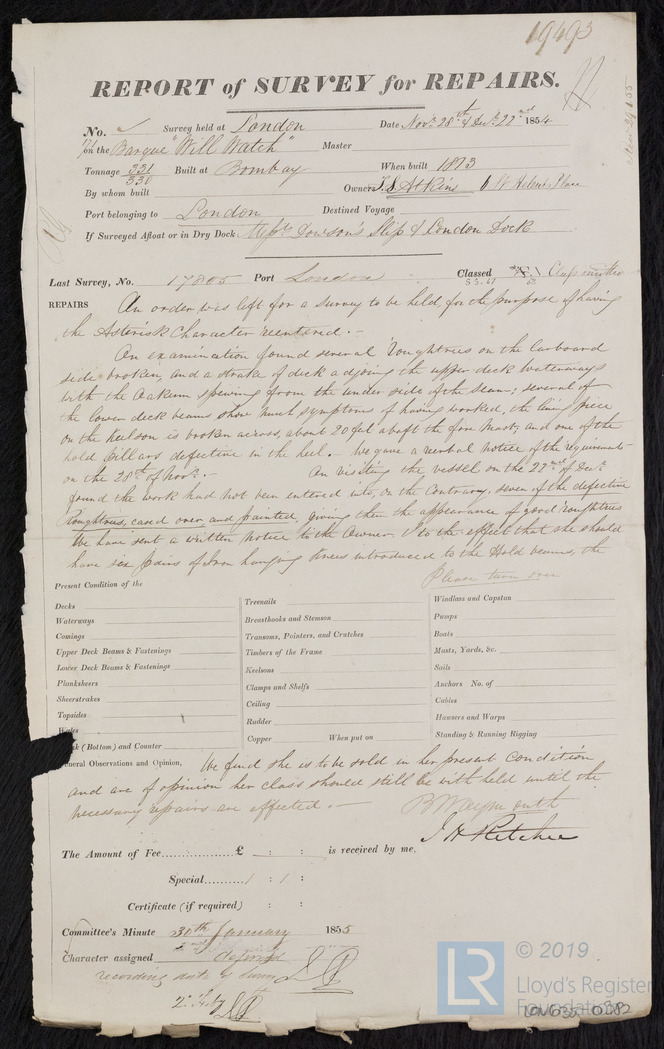 19493
REPORT of SURVEY for REPAIRS.
No. Survey held at London Date Novr. 28th & Decr. 22nd 1854
on the Barque "Will Watch" Master
Tonnage 331 Built at Bombay When built 1813
330
By whom built Owners Atkins 6 St Helens Place
Port belonging to London Destined Voyage
If Surveyed Afloat or in Dry Dock Messrs Dowson's Slip & London Dock
Last Survey, No. 17805 Port London Classed
REPAIRS An order was left for a survey to be held for the purpose of having
the Asterisk Character reentered. —
An examination found several roughtrees on the larboard
side broken, and a strake of deck adjoing the upper deck waterways
with the Oakum spewing from the under side of the seam; several of
the lower deck beams show much symptoms of having worked, the lining piece
on the Keelson is broken across, about 20 feet abaft the fore Mast, and one of the
hold Pillars defective in the heel. — We gave a verbal notice of the requirements
on the 28th of Novr. — On visiting the vessel on the 22nd of Decr.
found the work had not been entered into, on the Contrary, seven of the defective
Roughtrees, cased over and painted, giving them the appearance of good roughtrees
We have sent a written notice to the Owner, to the effect that she should
have six pairs of Iron hanging Knees introduced to the Hold beams, the
Please turn over
Present Condition of the
Decks
Waterways
Comings
Upper Deck Beams & Fastenings
Lower Deck Beams & Fastenings
Planksheers
Sheerstrakes
Topsides
Wales
k (Bottom) and Counter
Treenails
Breasthooks and Stemson
Transoms, Pointers, and Crutches
Timbers of the Frame
Keelsons
Clamps and Shelfs
Ceiling
Rudder
Copper When put on
Windlass and Capstan
Pumps
Boats
Masts, Yards, &c.
Sails
Anchors No. of
Cables
Hawsers and Warps
Standing & Running Rigging
neral Observations and Opinion, We find she is to be sold in her present condition
and are of opinion her class should still be with held until the
necessary repairs are effected. —
B Waymouth
J H Ritchie
The Amount of Fee £ : : is received by me,
Special : 1 :
Certificate (if required) : :
Committee's Minute 30th January 1855
Character assigned deferred
2d Feby
© 2019
LR
Lloyd's Register
Foundation
LON635-0382